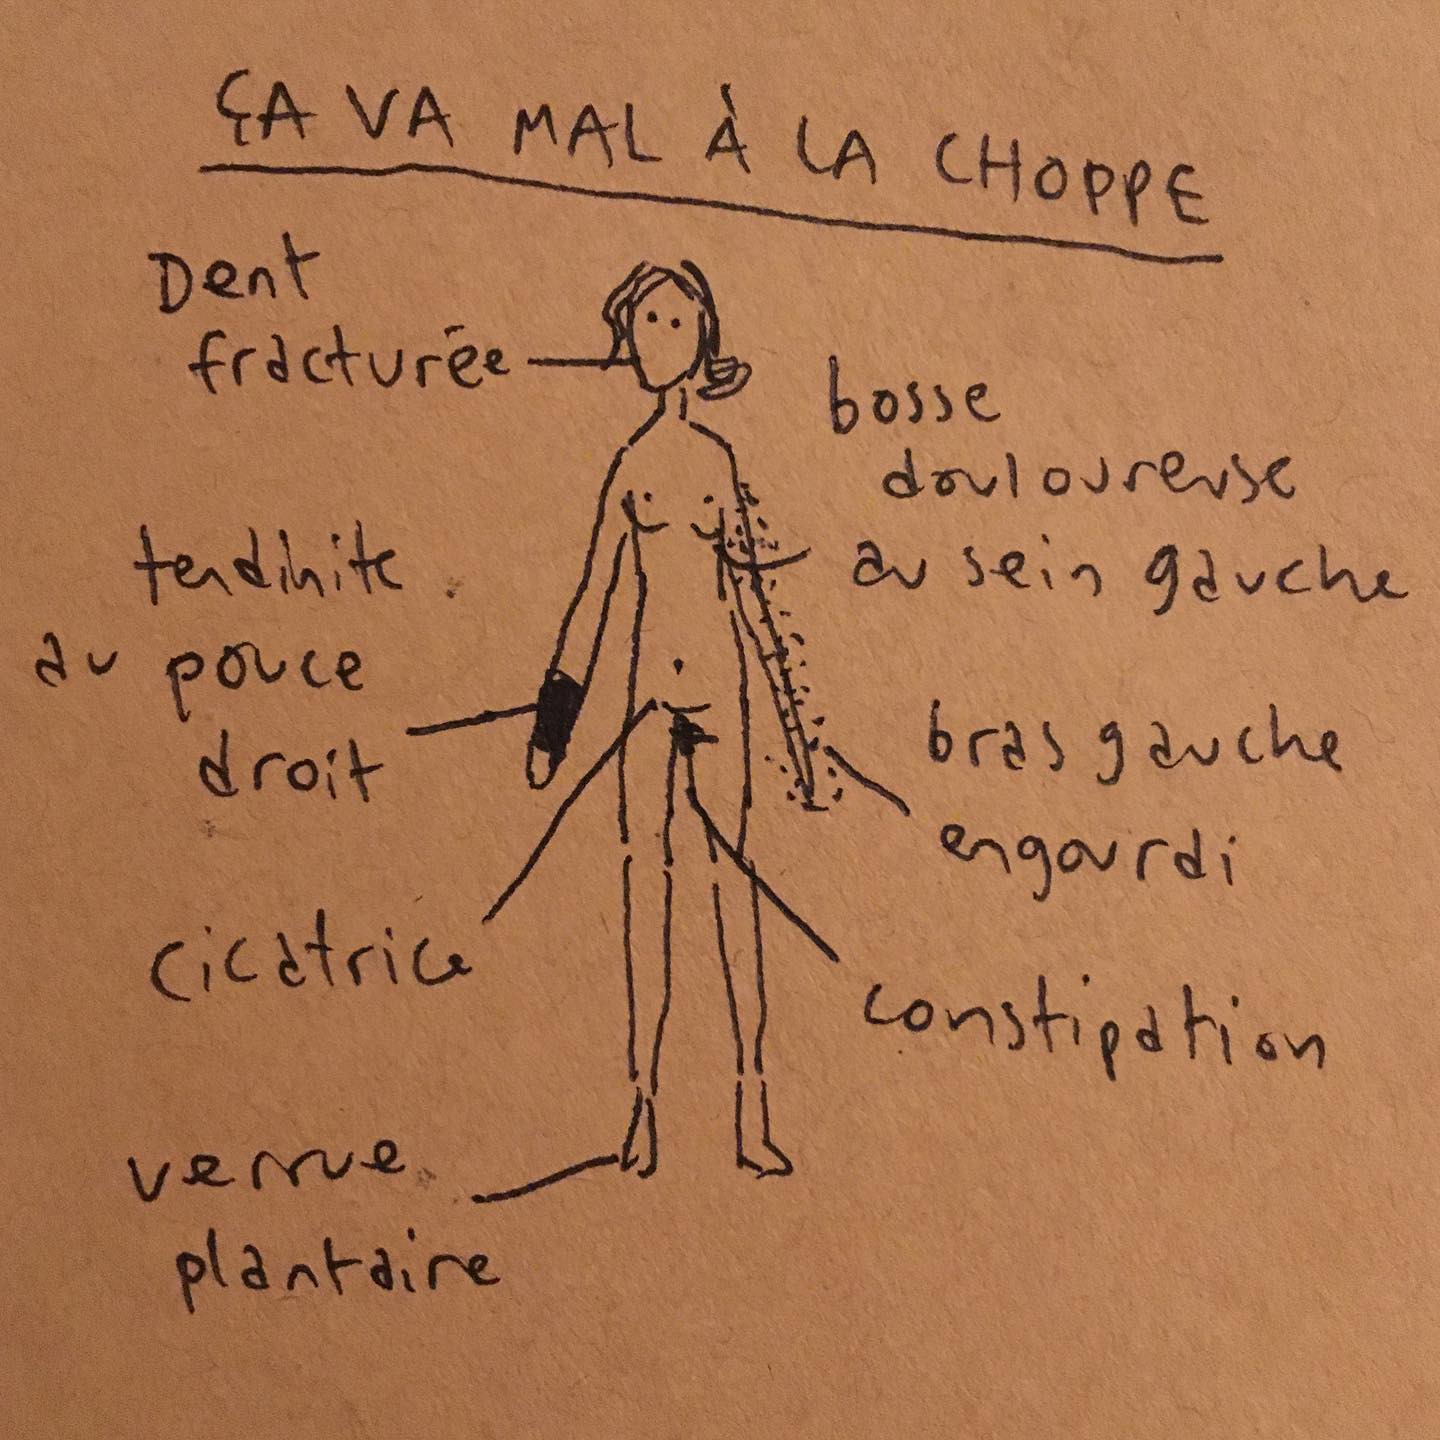 ÇA VA MAL À LA CHOPPE
Dent
fracturée
bosse
douloureuse
au sein gauche
tendinite
au pouce
droit
bras gauche
engourdi
cicatrice
constipation
verrue
plantaire